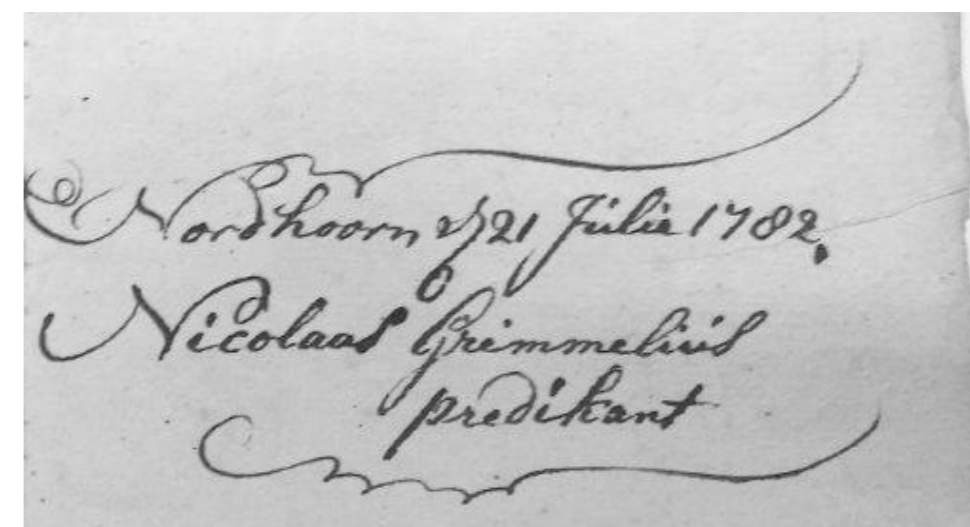 Nordhoorn d 21 Julie 1782.
Nicolaas Grimmelius
predikant